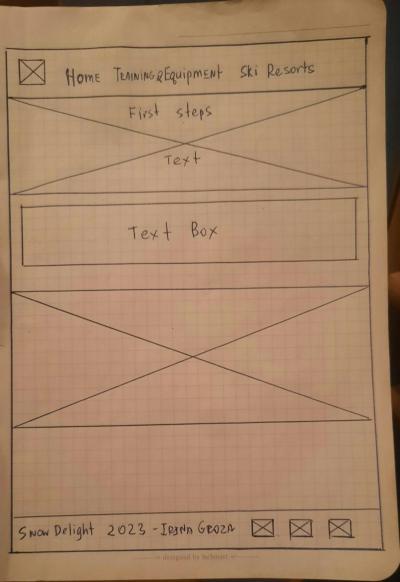 Home Training&Equipment Ski Resorts
First steps
Text
Text Box
Snow Delight 2023 - Irina Groza
designed by